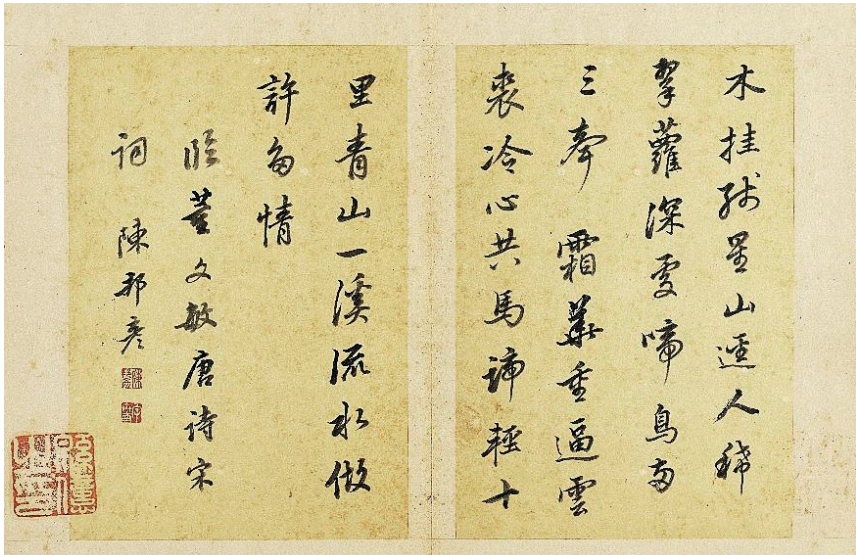 木挂殘星山逕人稀
翠蘿深處啼鳥兩
三聲霜華重逼雲
裘冷心共馬蹄輕十
里青山一溪流水做
許多情
臨董文敏唐詩宋
詞 陳邦彦